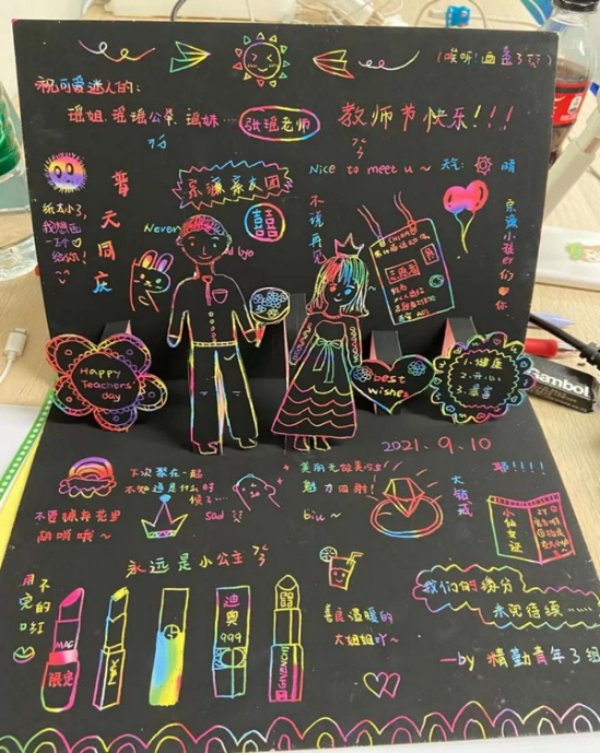 (唉呀:画歪了
祝可爱迷人的:
瑶姐、瑶瑶公举、瑶妹……张瑶老师 教师节快乐!!!
Nice to meet u ~ 天气: 晴
普天同庆
纸太小了,
我想画
一个
给你!
亲友团
囍
Never
bye
不说再见
志愿者
你
Happy
Teachers'
day
best
wishes
1.健康
2.开心
3.幸福
Gambol
2021.9.10
下次聚在一起
不知道是什么时
候了…
sad
不要嫌弃花里
胡哨哦~
美丽无敌美少女
魅力四射!
biu ~
大钻戒
耶!!!!
小仙女证
永远是小公主
用不完的口红
MAC
限定
MAC
迪奥
999
GIVENCHY
善良温暖的
大姐姐吖~
我们的缘分
未完待续……
—by 精勤青年了组